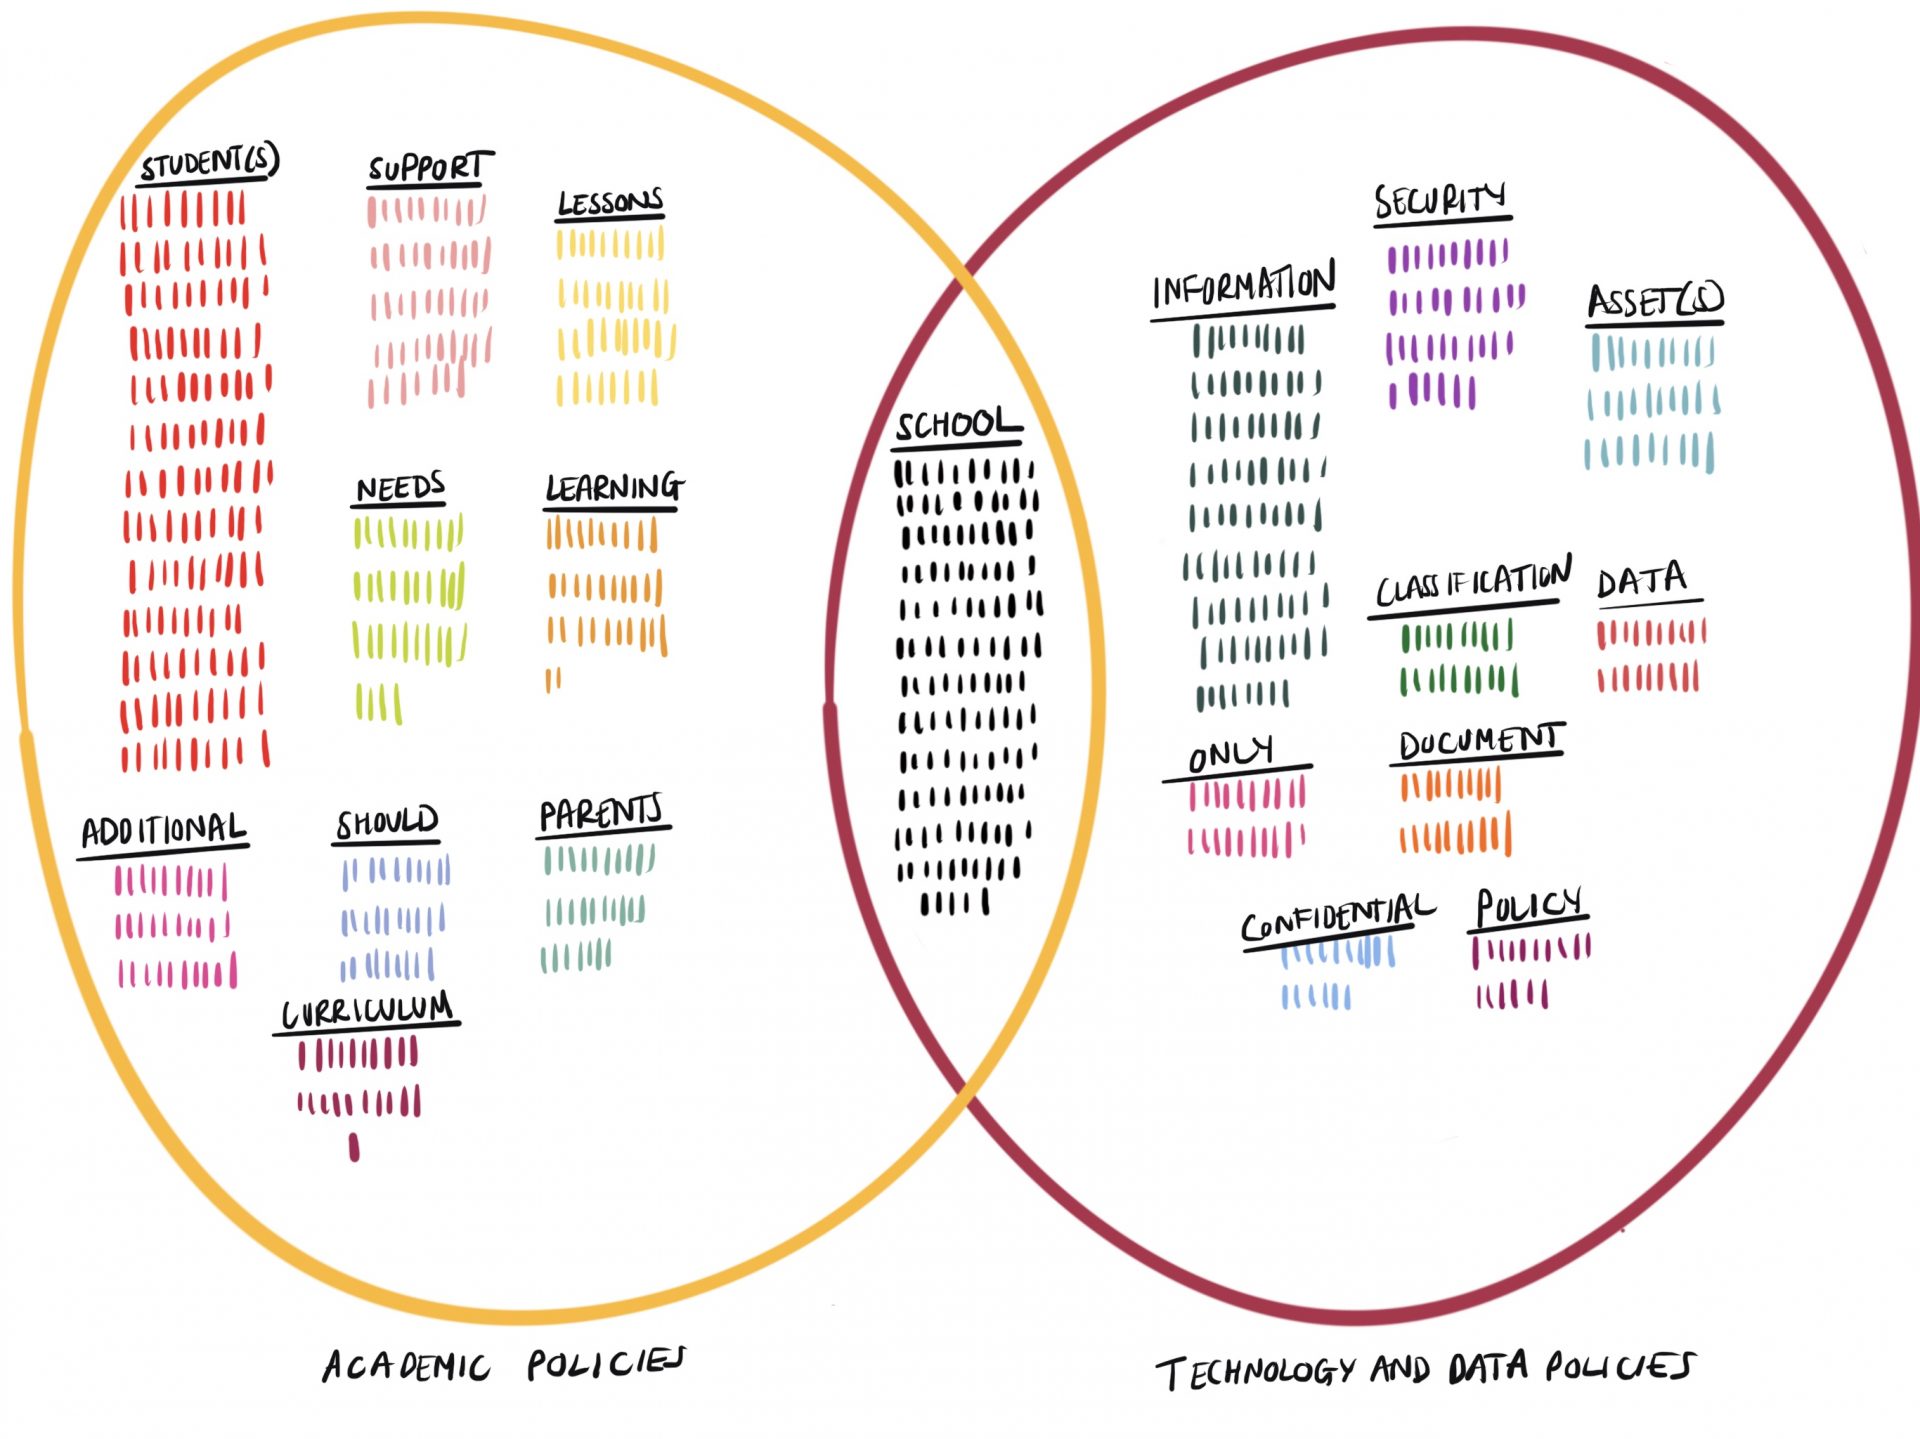 STUDENT(S)
SUPPORT
LESSONS
NEEDS
LEARNING
ADDITIONAL
SHOULD
PARENTS
CURRICULUM
SCHOOL
SECURITY
INFORMATION
ASSET(S)
CLASSIFICATION
DATA
ONLY
DOCUMENT
CONFIDENTIAL
POLICY
ACADEMIC POLICIES
TECHNOLOGY AND DATA POLICIES